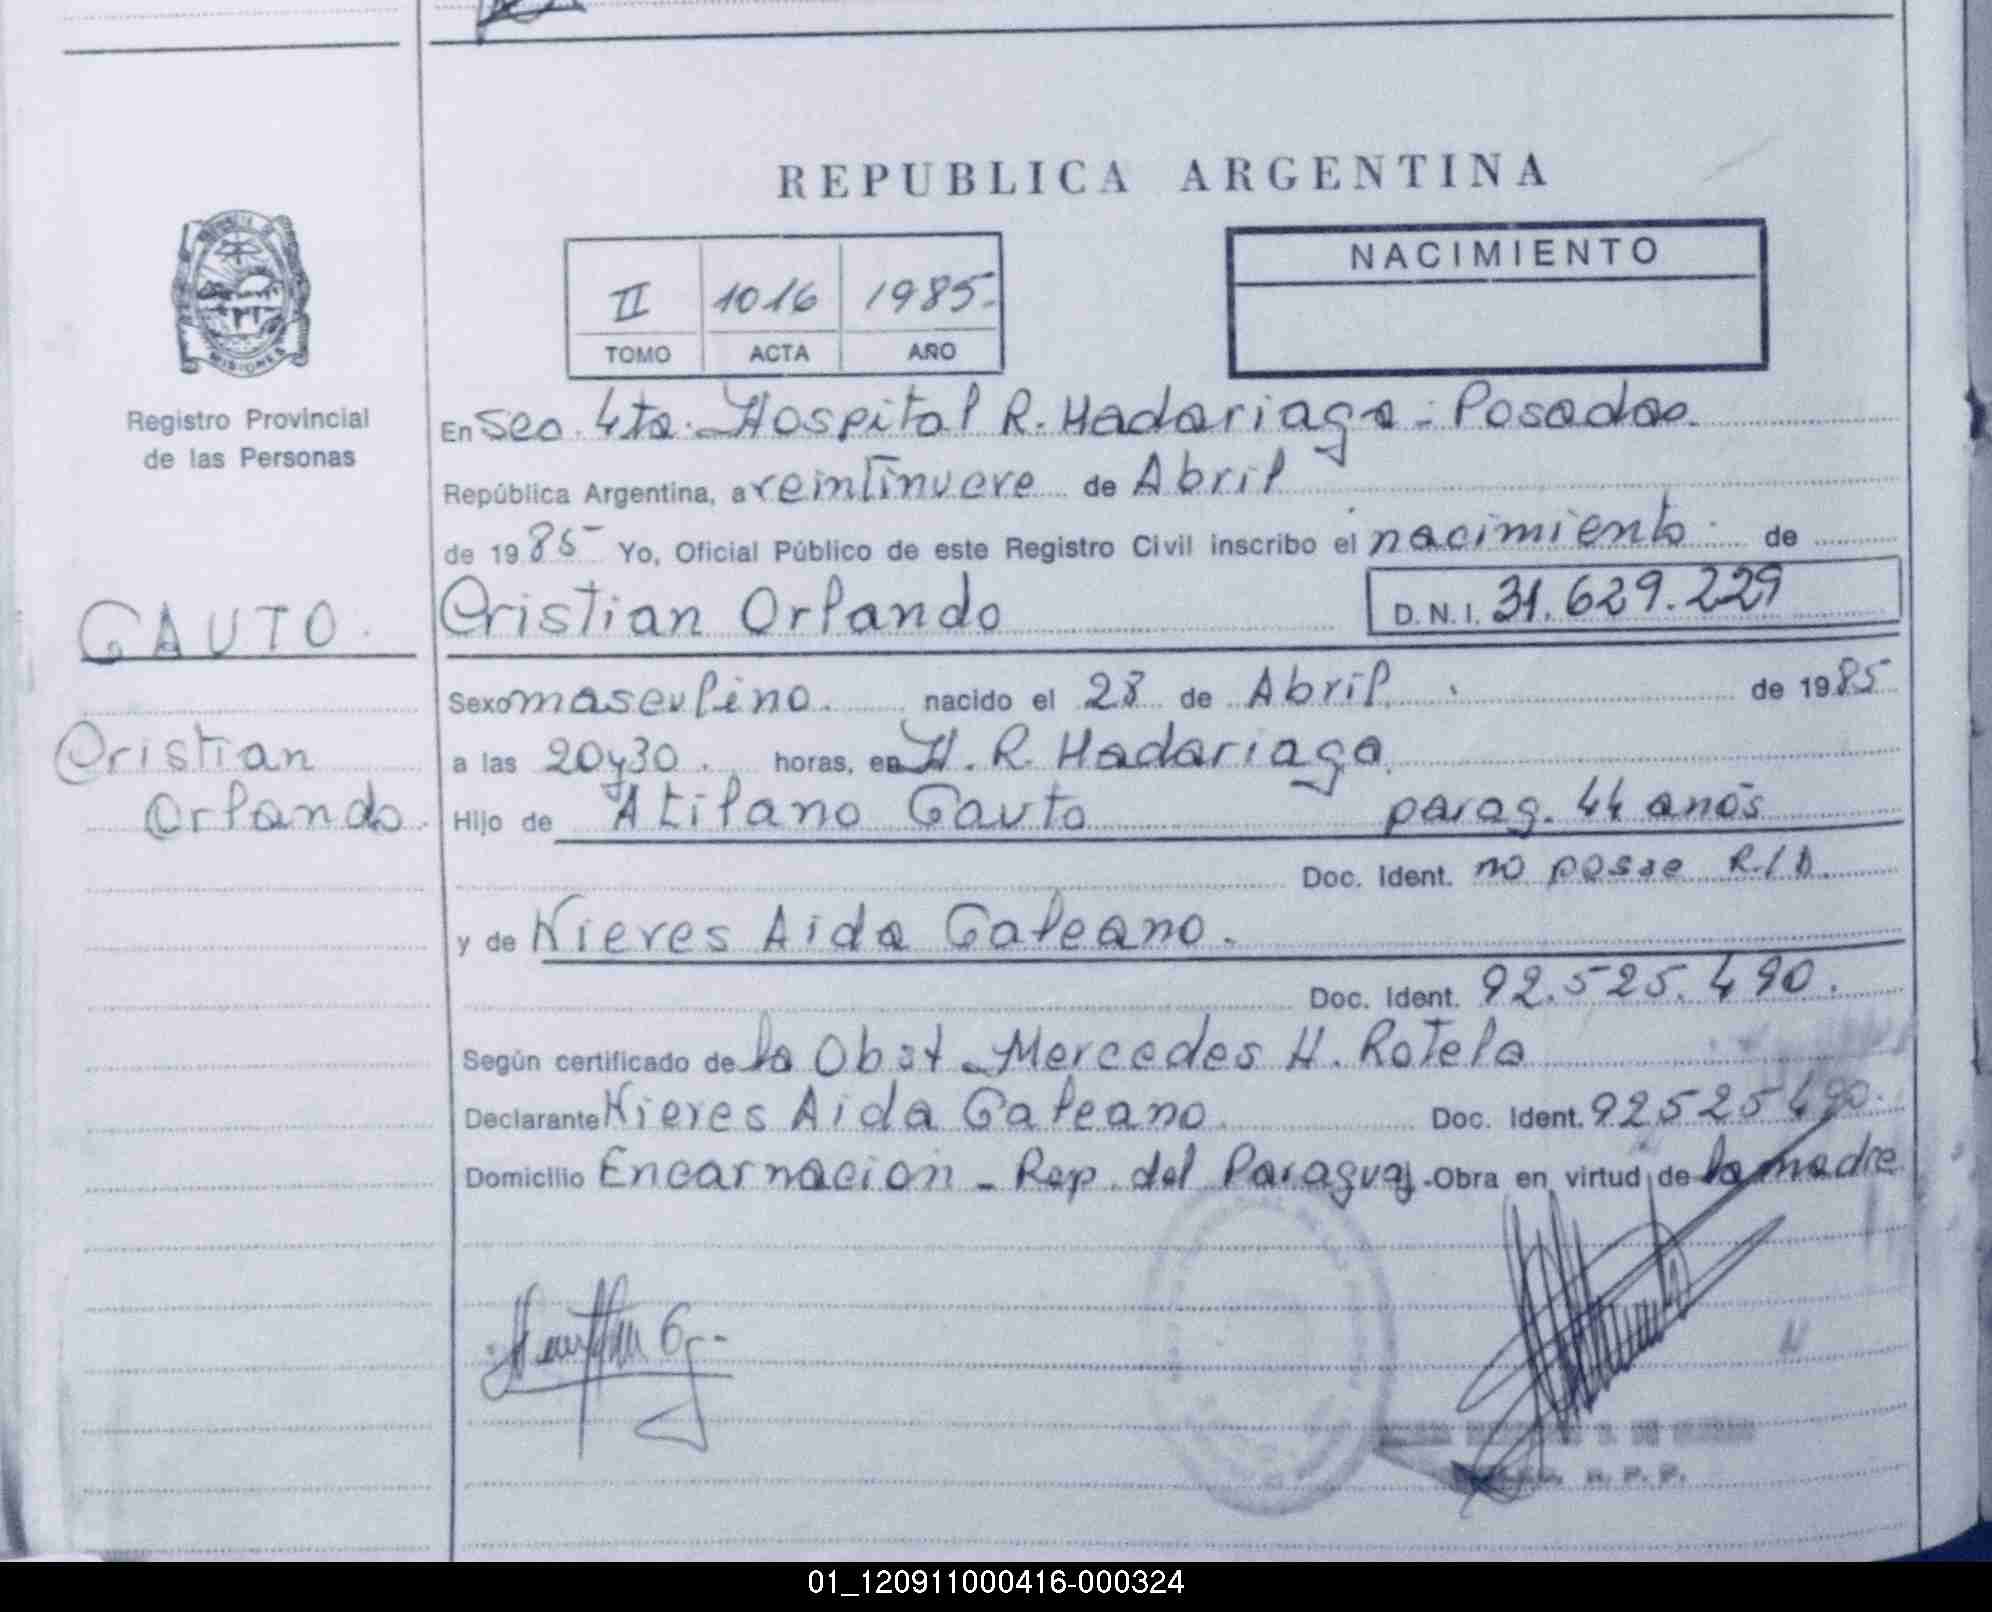 REPUBLICA ARGENTINA
II 1016 1985.
TOMO ACTA AÑO
NACIMIENTO
MISIONES
Registro Provincial
de las Personas
En Sec. 4ta. Hospital R. Madariaga - Posadas.
República Argentina, a veintinueve de Abril
de 1985 Yo, Oficial Público de este Registro Civil inscribo el nacimiento de
GAUTO.
Cristian Orlando
D.N.I. 31.629.229
Sexo masculino. nacido el 28 de Abril. de 1985
Cristian
Orlando.
a las 20y30. horas, en H. R. Madariaga.
Hijo de Atilano Gauto parag. 44 anos
Doc. Ident. no posee R/D.
y de Nieves Aida Galeano.
Doc. Ident. 92.525.490.
Según certificado de la Obst Mercedes H. Rotela
Declarante Nieves Aida Galeano. Doc. Ident. 92525490.
Domicilio Encarnacion - Rep. del Paraguay - Obra en virtud de la madre
01_120911000416-000324